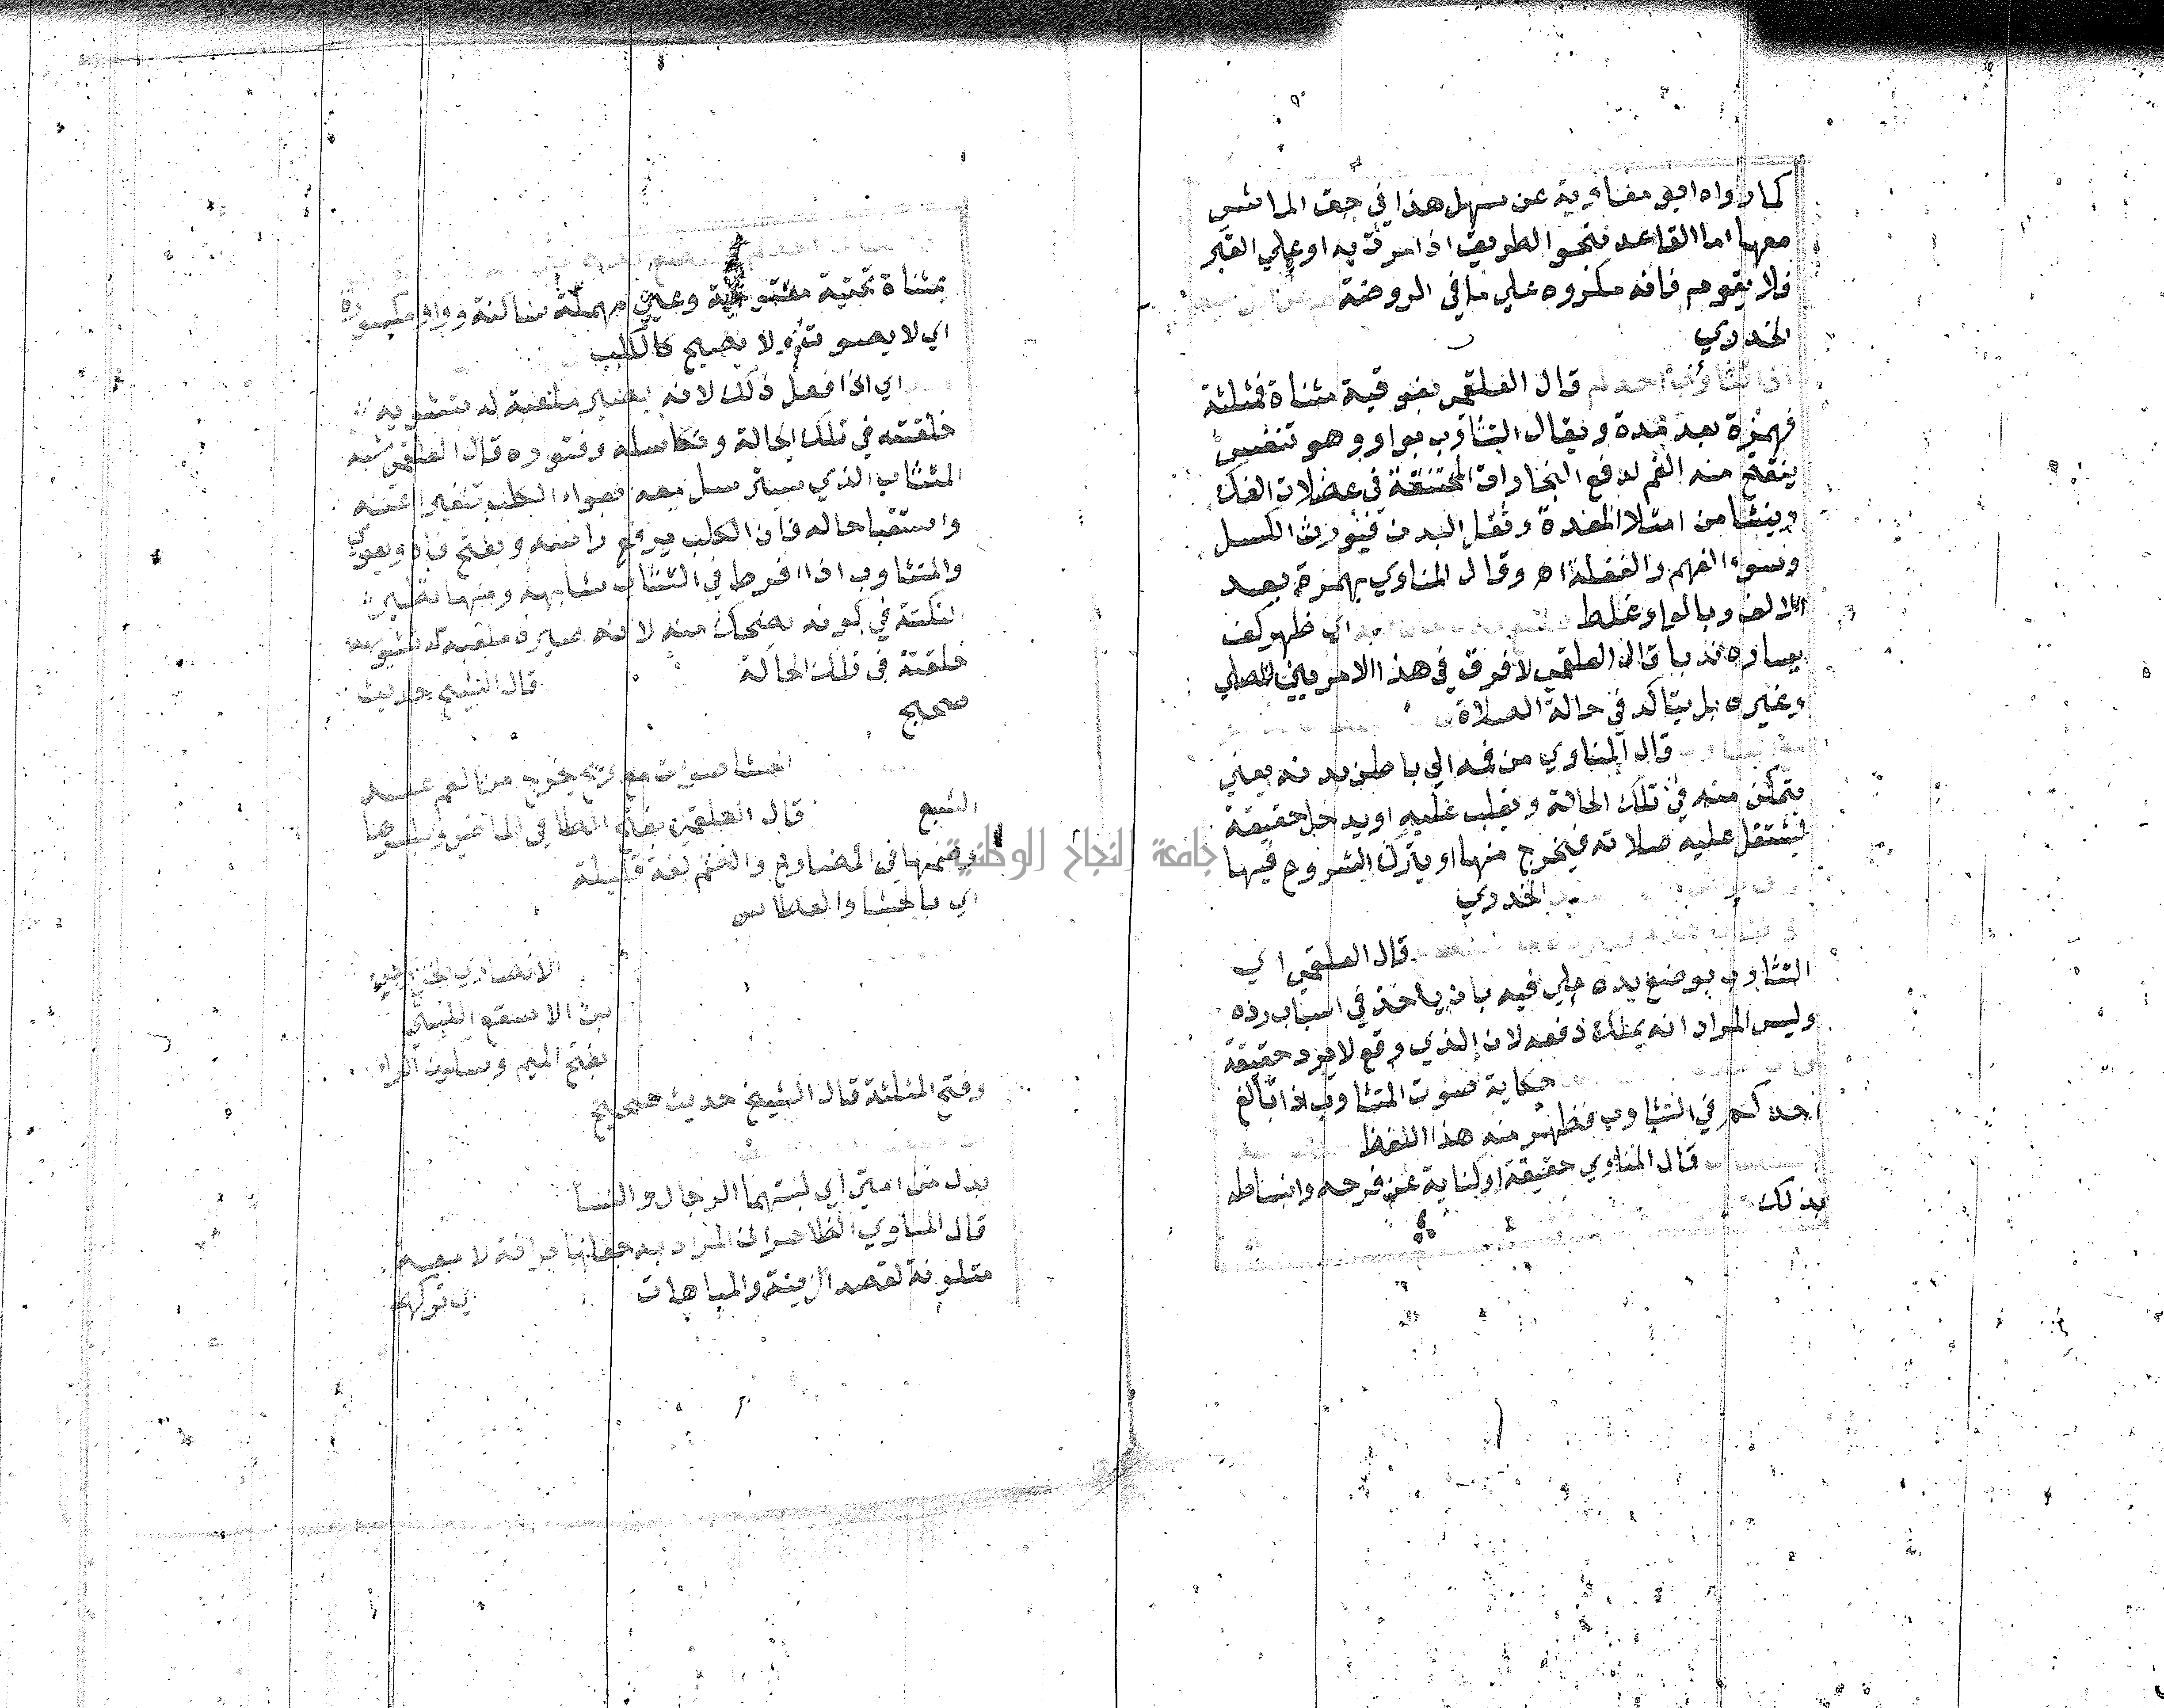 كما رواه ابو معاوية عن سهل هذا في حق الماشي
معها اما القاعد بنحو الطريق اذا مرت به او علي القبر
فلا يقوم فانه مكروه علي ما في الروضة
الخدري
اذا تثاوب احدكم قال العلقمي بفوقية مثناة فمثلثة
فهمزة بعد مدة ويقال التثاوب بواو وهو تنفس
ينفتح منه الفم لدفع البخارات المختنقة في عضلات الفك
وينشا من امتلا المعدة وثقل البدن فيورث الكسل
وسوء الفهم والغفلة اه وقال المناوي بهمزة بعد
الالف وبالواو غلط اي ظهر كف
يساره ندبا قال العلقمي لا فرق في هذا الامر بين المصلي
وغيره بل يتاكد في حالة الصلاة
قال المناوي من فمه الي باطن بدنه يعني
يتمكن منه في تلك الحالة ويغلب عليه او يدخل حقيقة
ليثقل عليه صلاته فيخرج منها او يترك الشروع فيها
الخدري
قال العلقمي اي
التثاوب بوضع يده علي فيه بان ياخذ في اسباب رده
وليس المراد انه يملك دفعه لان الذي وقع لا يرد حقيقة
حكاية صوت المتثاوب اذا بالغ
احدكم في التثاوب فظهر منه هذا اللفظ
قال المناوي حقيقة او كناية عن فرحه وانبساطه
بذلك
بمثناة تحتية مفتوحة وعين مهملة ساكنة وواو مكسورة
اي لا يصوت ولا يصيح كالكلب
اي اذا فعل ذلك لانه يصير ملعبة له بتشويه
خلقته في تلك الحالة وتكاسله وفتوره قال العلقمي شبه
المتثاب الذي يسترسل معه بعواء الكلب تنفيرا عنه
واستقباحا له فان الكلب يرفع راسه ويفتح فاه ويعوي
والمتثاوب اذا افرط في التثاب شابهه ومنها تظهر
النكتة في كونه يضحك منه لانه صيره ملعبة له بتشويه
خلقته في تلك الحالة قال الشيخ حديث
صحيح
الجشا صوت مع ريح يخرج من الفم عند
الشبع قال العلقمي بفتح الطا في الماضي وبكسرها
وضمها في المضارع والضم لغة قليلة
اي بالجشا والعطاس
الانصاري الخزرجي
بن الاسقع الليثي
بفتح الميم وسكون الراء
وفتح المثلثة قال الشيخ حديث صحيح
بدل من امتي اي لبستهما الرجال والنسا
قال المناوي الظاهر ان المراد به جعلها براقة لامعة
متلونة لقصد الزينة والمباهات اي تركهم
جامعة النجاح الوطنية